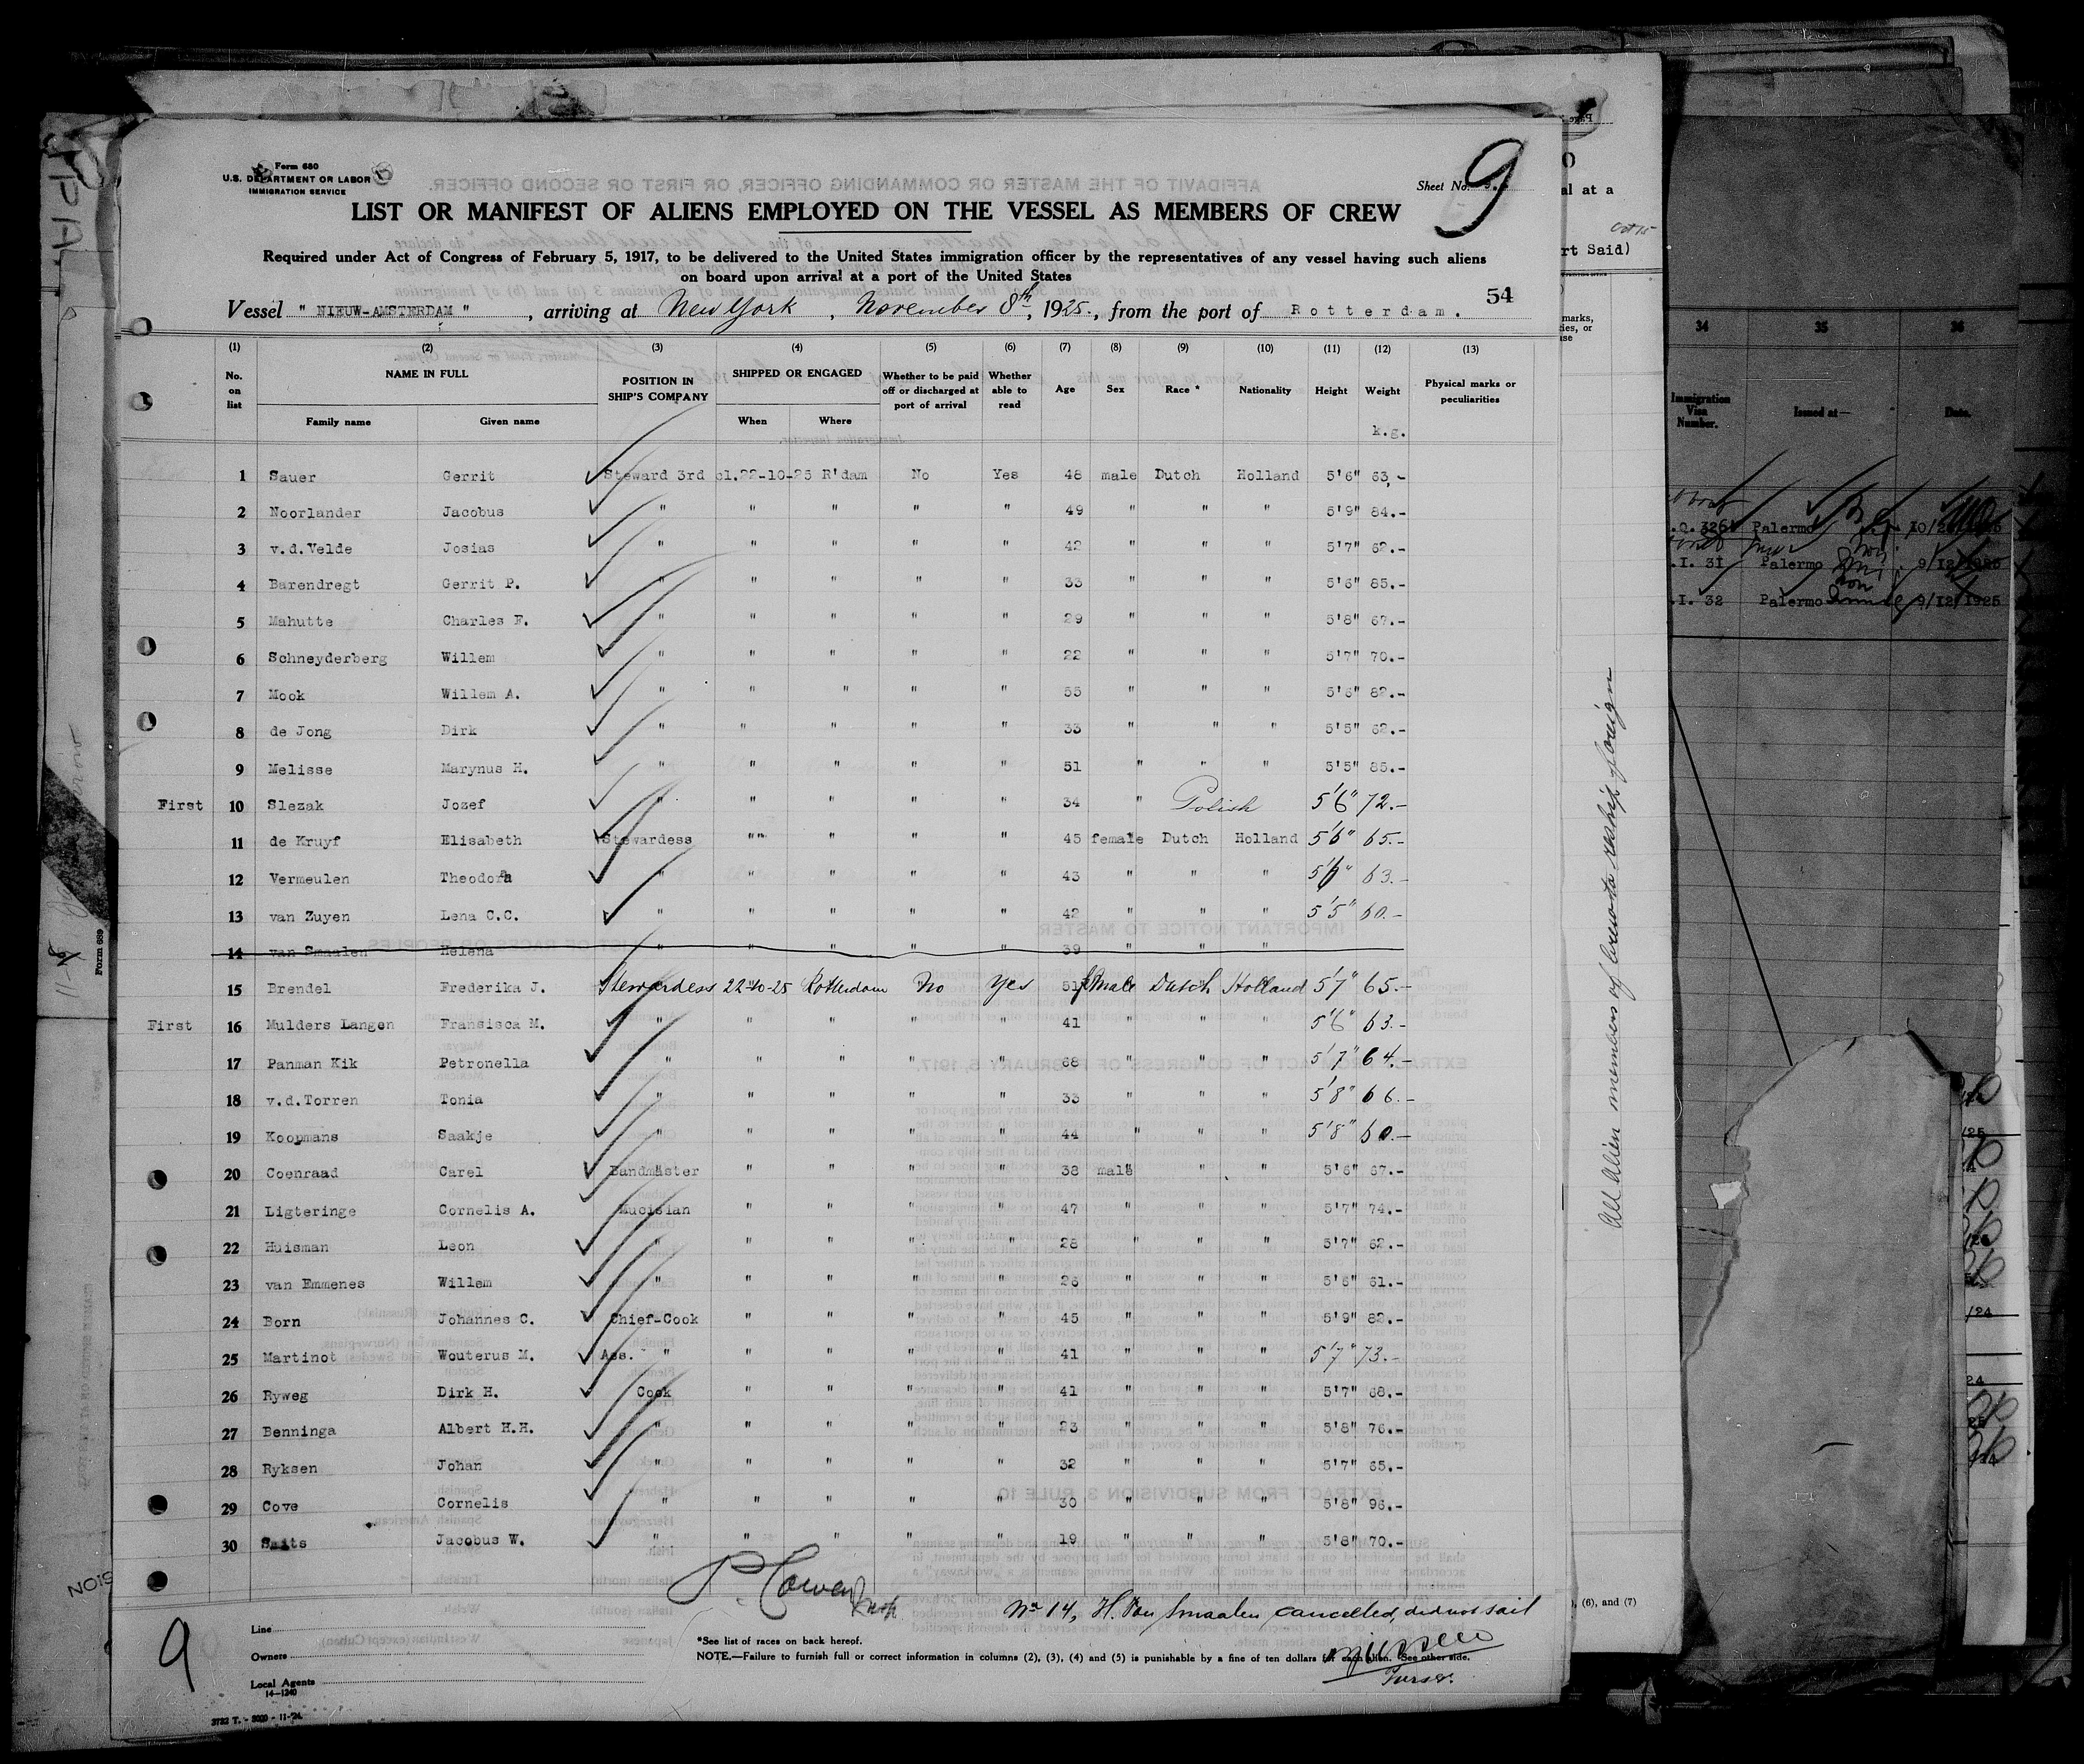 Form 680
U.S. DEPARTMENT OR LABOR
IMMIGRATION SERVICE
Sheet No.
9
LIST OR MANIFEST OF ALIENS EMPLOYED ON THE VESSEL AS MEMBERS OF CREW
Required under Act of Congress of February 5, 1917, to be delivered to the United States immigration officer by the representatives of any vessel having such aliens
on board upon arrival at a port of the United States
54
Vessel " NIEUW-AMSTERDAM ", arriving at New York, November 8th, 1925., from the port of Rotterdam.
(1) (2) (3) (4) (5) (6) (7) (8) (9) (10) (11) (12) (13)
No. on list NAME IN FULL POSITION IN SHIP'S COMPANY SHIPPED OR ENGAGED Whether to be paid off or discharged at port of arrival Whether able to read Age Sex Race * Nationality Height Weight Physical marks or peculiarities
Family name Given name When Where
k.g.
1 Sauer Gerrit Steward 3rd cl. 22-10-25 R'dam No Yes 48 male Dutch Holland 5'6" 63,-
2 Noorlander Jacobus " " " " " 49 " " " 5'9" 84.-
3 v.d.Velde Josias " " " " " 42 " " " 5'7" 62.-
4 Barendregt Gerrit P. " " " " " 33 " " " 5'6" 85.-
5 Mahutte Charles F. " " " " " 29 " " " 5'8" 67.-
6 Schneyderberg Willem " " " " " 22 " " " 5'7" 70.-
7 Mook Willem A. " " " " " 55 " " " 5'6" 82.-
8 de Jong Dirk " " " " " 33 " " " 5'5" 62.-
9 Melisse Marynus H. " " " " " 51 " " " 5'5" 85.-
First 10 Slezak Jozef " " " " " 34 " Polish 5'6" 72.-
11 de Kruyf Elisabeth Stewardess " " " " 45 female Dutch Holland 5'6" 65.-
12 Vermeulen Theodora " " " " " 43 " " " 5'6" 63.-
13 van Zuyen Lena C.C. " " " " " 42 " " " 5'5" 60.-
14 van Smaalen Helena " " " " " 39 " " "
15 Brendel Frederika J. Stewardess 22-10-25 Rotterdam No Yes 51 female Dutch Holland 5'7" 65.-
First 16 Mulders Langen Fransisca M. " " " " " 41 " " " 5'6" 63.-
17 Panman Kik Petronella " " " " " 68 " " " 5'7" 64.-
18 v.d.Torren Tonia " " " " " 33 " " " 5'8" 66.-
19 Koopmans Saakje " " " " " 44 " " " 5'8" 60.-
20 Coenraad Carel Bandmaster " " " " 38 male " " 5'6" 67.-
21 Ligteringe Cornelis A. Mucisian " " " " 47 " " " 5'7" 74.-
22 Huisman Leon " " " " " 28 " " " 5'7" 62.-
23 van Emmenes Willem " " " " " 26 " " " 5'6" 61.-
24 Born Johannes C. Chief-Cook " " " " 45 " " " 5'9" 82.-
25 Martinot Wouterus M. Ass. " " " " " 41 " " " 5'7" 73.-
26 Ryweg Dirk H. Cook " " " " 41 " " " 5'7" 68.-
27 Benninga Albert H.H. " " " " " 23 " " " 5'8" 76.-
28 Ryksen Johan " " " " " 32 " " " 5'7" 65.-
29 Cove Cornelis " " " " " 30 " " " 5'8" 96.-
30 Smits Jacobus W. " " " " " 19 " " " 5'8" 70.-
No 14, H. van Smaalen cancelled, did not sail
Purser.
9
Line
Owners
Local Agents
14—1240
*See list of races on back hereof.
NOTE.—Failure to furnish full or correct information in columns (2), (3), (4) and (5) is punishable by a fine of ten dollars for each alien. See other side.
3732 T. - 5000 - 11-'24.
All alien members of crew to reship foreign
al at a
rt Said)
marks,
ies, or
(6), and (7)
Form 689
34 35 36
Immigration Visa Number. Issued at— Date.
326 Palermo
.I. 31 Palermo 9/12/1925
.I. 32 Palermo 9/12/1925